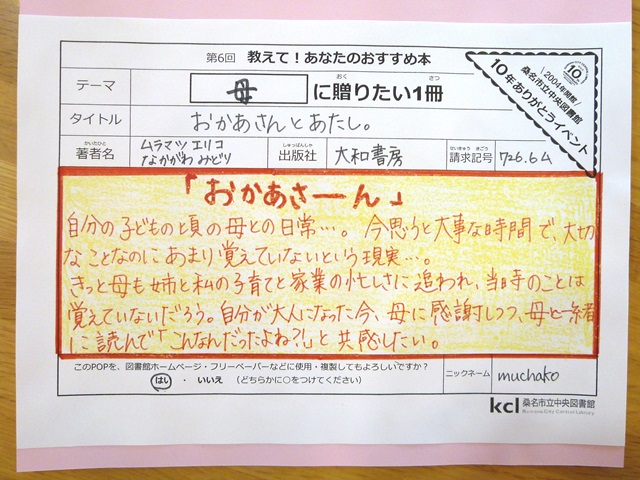 第6回 教えて！あなたのおすすめ本
テーマ 母に贈りたい1冊
おく さつ
2004年開館！
桑名市立中央図書館
10年ありがとうイベント
タイトル おかあさんとあたし。
かいたひと
著者名 ムラマツエリコ なかがわみどり
しゅっぱんしゃ
出版社 大和書房
せいきゅう きごう
請求記号 726.6ム
「おかあさーん」
自分の子どもの頃の母との日常…。今思うと大事な時間で、大切
なことなのにあまり覚えていないという現実…。
きっと母も姉と私の子育てと家業の忙しさに追われ、当時のことは
覚えていないだろう。自分が大人になった今、母に感謝しつつ、母と一緒
に読んで「こんなんだったよね?!」と共感したい。
このPOPを、図書館ホームページ・フリーペーパーなどに使用・複製してもよろしいですか？
はい ・ いいえ （どちらかに○をつけてください）
ニックネーム muchako
kcl 桑名市立中央図書館
Kuwana City Central Library